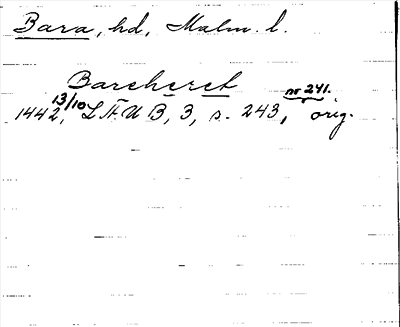 Bara, hd, Malm. l.
Bareheret
nr 241.
1442, 13/10 LÄUB, 3, s. 243, orig.